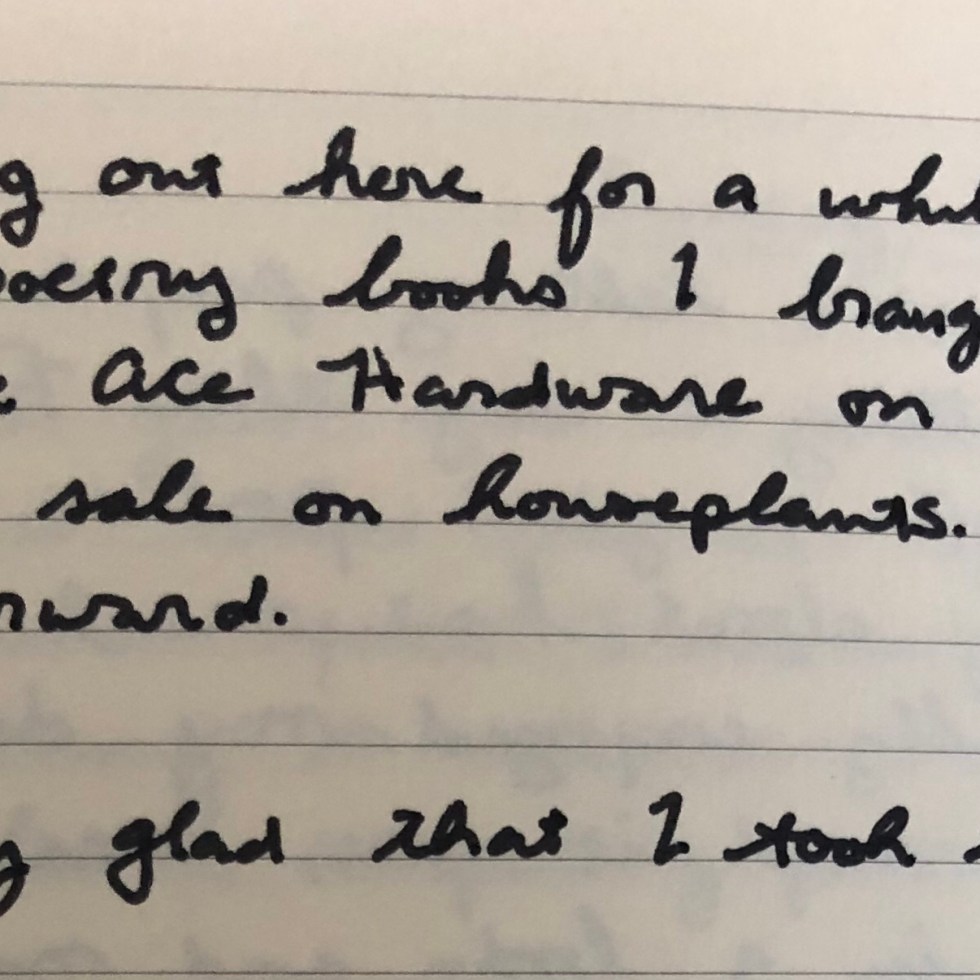 g out here for a whil
poetry books I broug
e Ace Hardware on
sale on houseplants.
rward.
g glad that I took